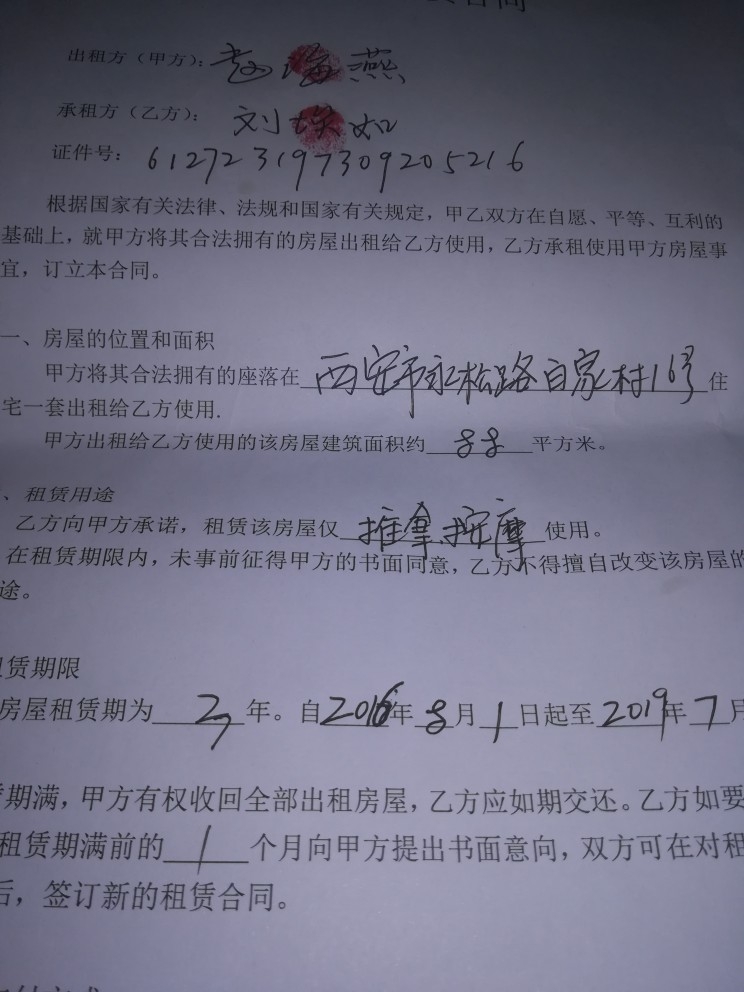 合同
出租方（甲方）：赵海燕
承租方（乙方）：刘埃如
证件号：612723197309205216
根据国家有关法律、法规和国家有关规定，甲乙双方在自愿、平等、互利的
基础上，就甲方将其合法拥有的房屋出租给乙方使用，乙方承租使用甲方房屋事
宜，订立本合同。
一、房屋的位置和面积
甲方将其合法拥有的座落在西安市永松路白家村16号住
宅一套出租给乙方使用.
甲方出租给乙方使用的该房屋建筑面积约88平方米。
、租赁用途
乙方向甲方承诺，租赁该房屋仅推拿按摩使用。
在租赁期限内，未事前征得甲方的书面同意，乙方不得擅自改变该房屋的
途。
租赁期限
房屋租赁期为 年。自2016年8月1日起至2019年7月
期满，甲方有权收回全部出租房屋，乙方应如期交还。乙方如要
租赁期满前的1个月向甲方提出书面意向，双方可在对租
后，签订新的租赁合同。